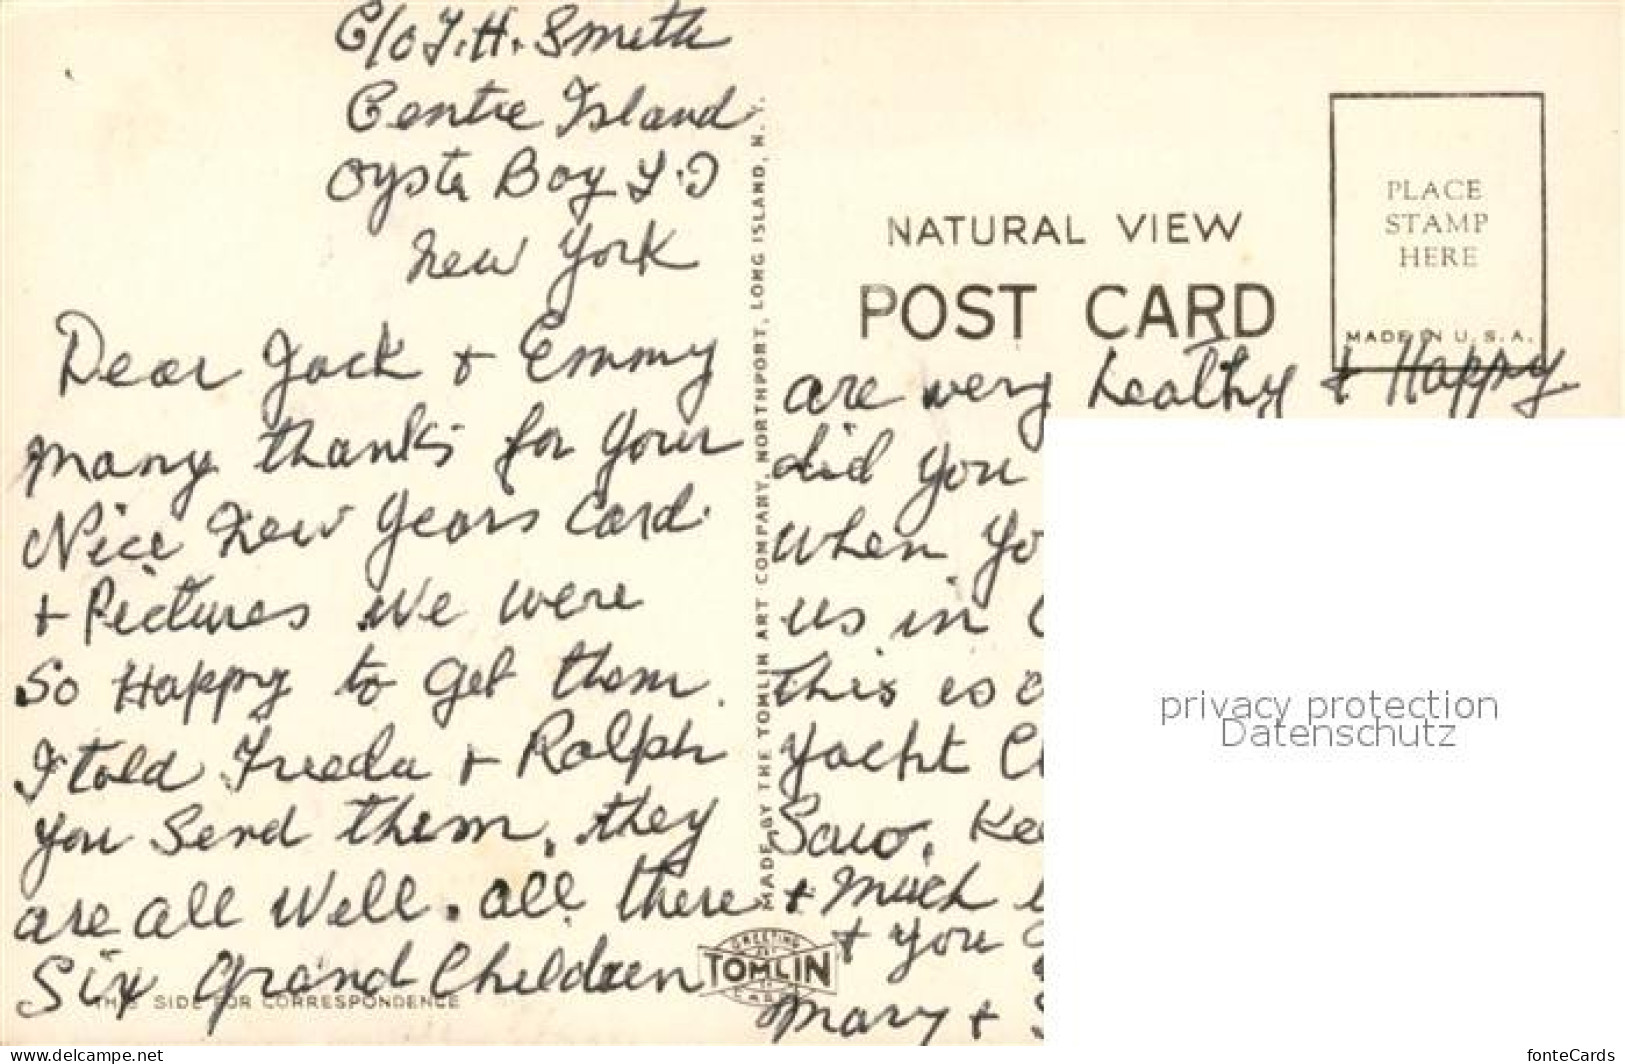 C/o T.H. Smith
Centre Island
Oyster Bay L.I
New York
Dear Jack + Emmy
Many thanks for your
Nice New Years Card.
+ Pictures We were
So Happy to get them.
I told Freeda + Ralph
you Send them, they
are all Well. all there
Six Grand Children
THIS SIDE FOR CORRESPONDENCE
MADE BY THE TOMLIN ART COMPANY, NORTHPORT, LONG ISLAND, N. Y.
GREETING
TOMLIN
CARDS
NATURAL VIEW
POST CARD
PLACE
STAMP
HERE
MADE IN U.S.A.
are very healthy + Happy
did you
when yo
us in
This is
Yacht Cl
Saw. Kee
+ much
+ you
Mary +
privacy protection
Datenschutz
www.delcampe.net
fonteCards